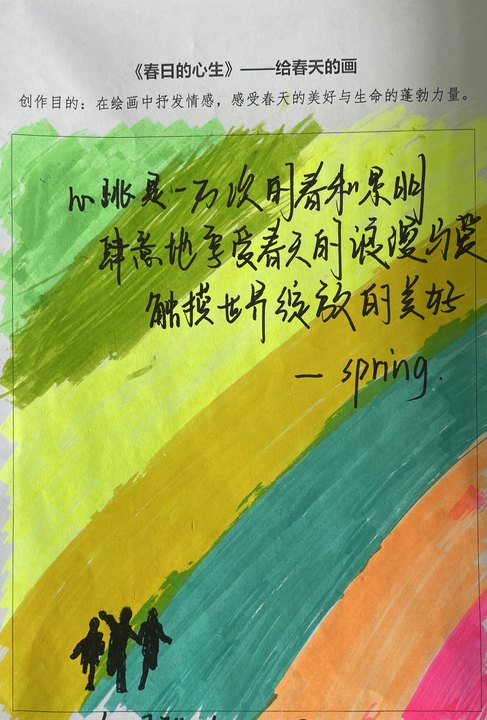 《春日的心生》——给春天的画
创作目的：在绘画中抒发情感，感受春天的美好与生命的蓬勃力量。
心跳是一万次的春和景明
肆意地享受春天的浪漫与爱
触摸世界绽放的美好
— spring.